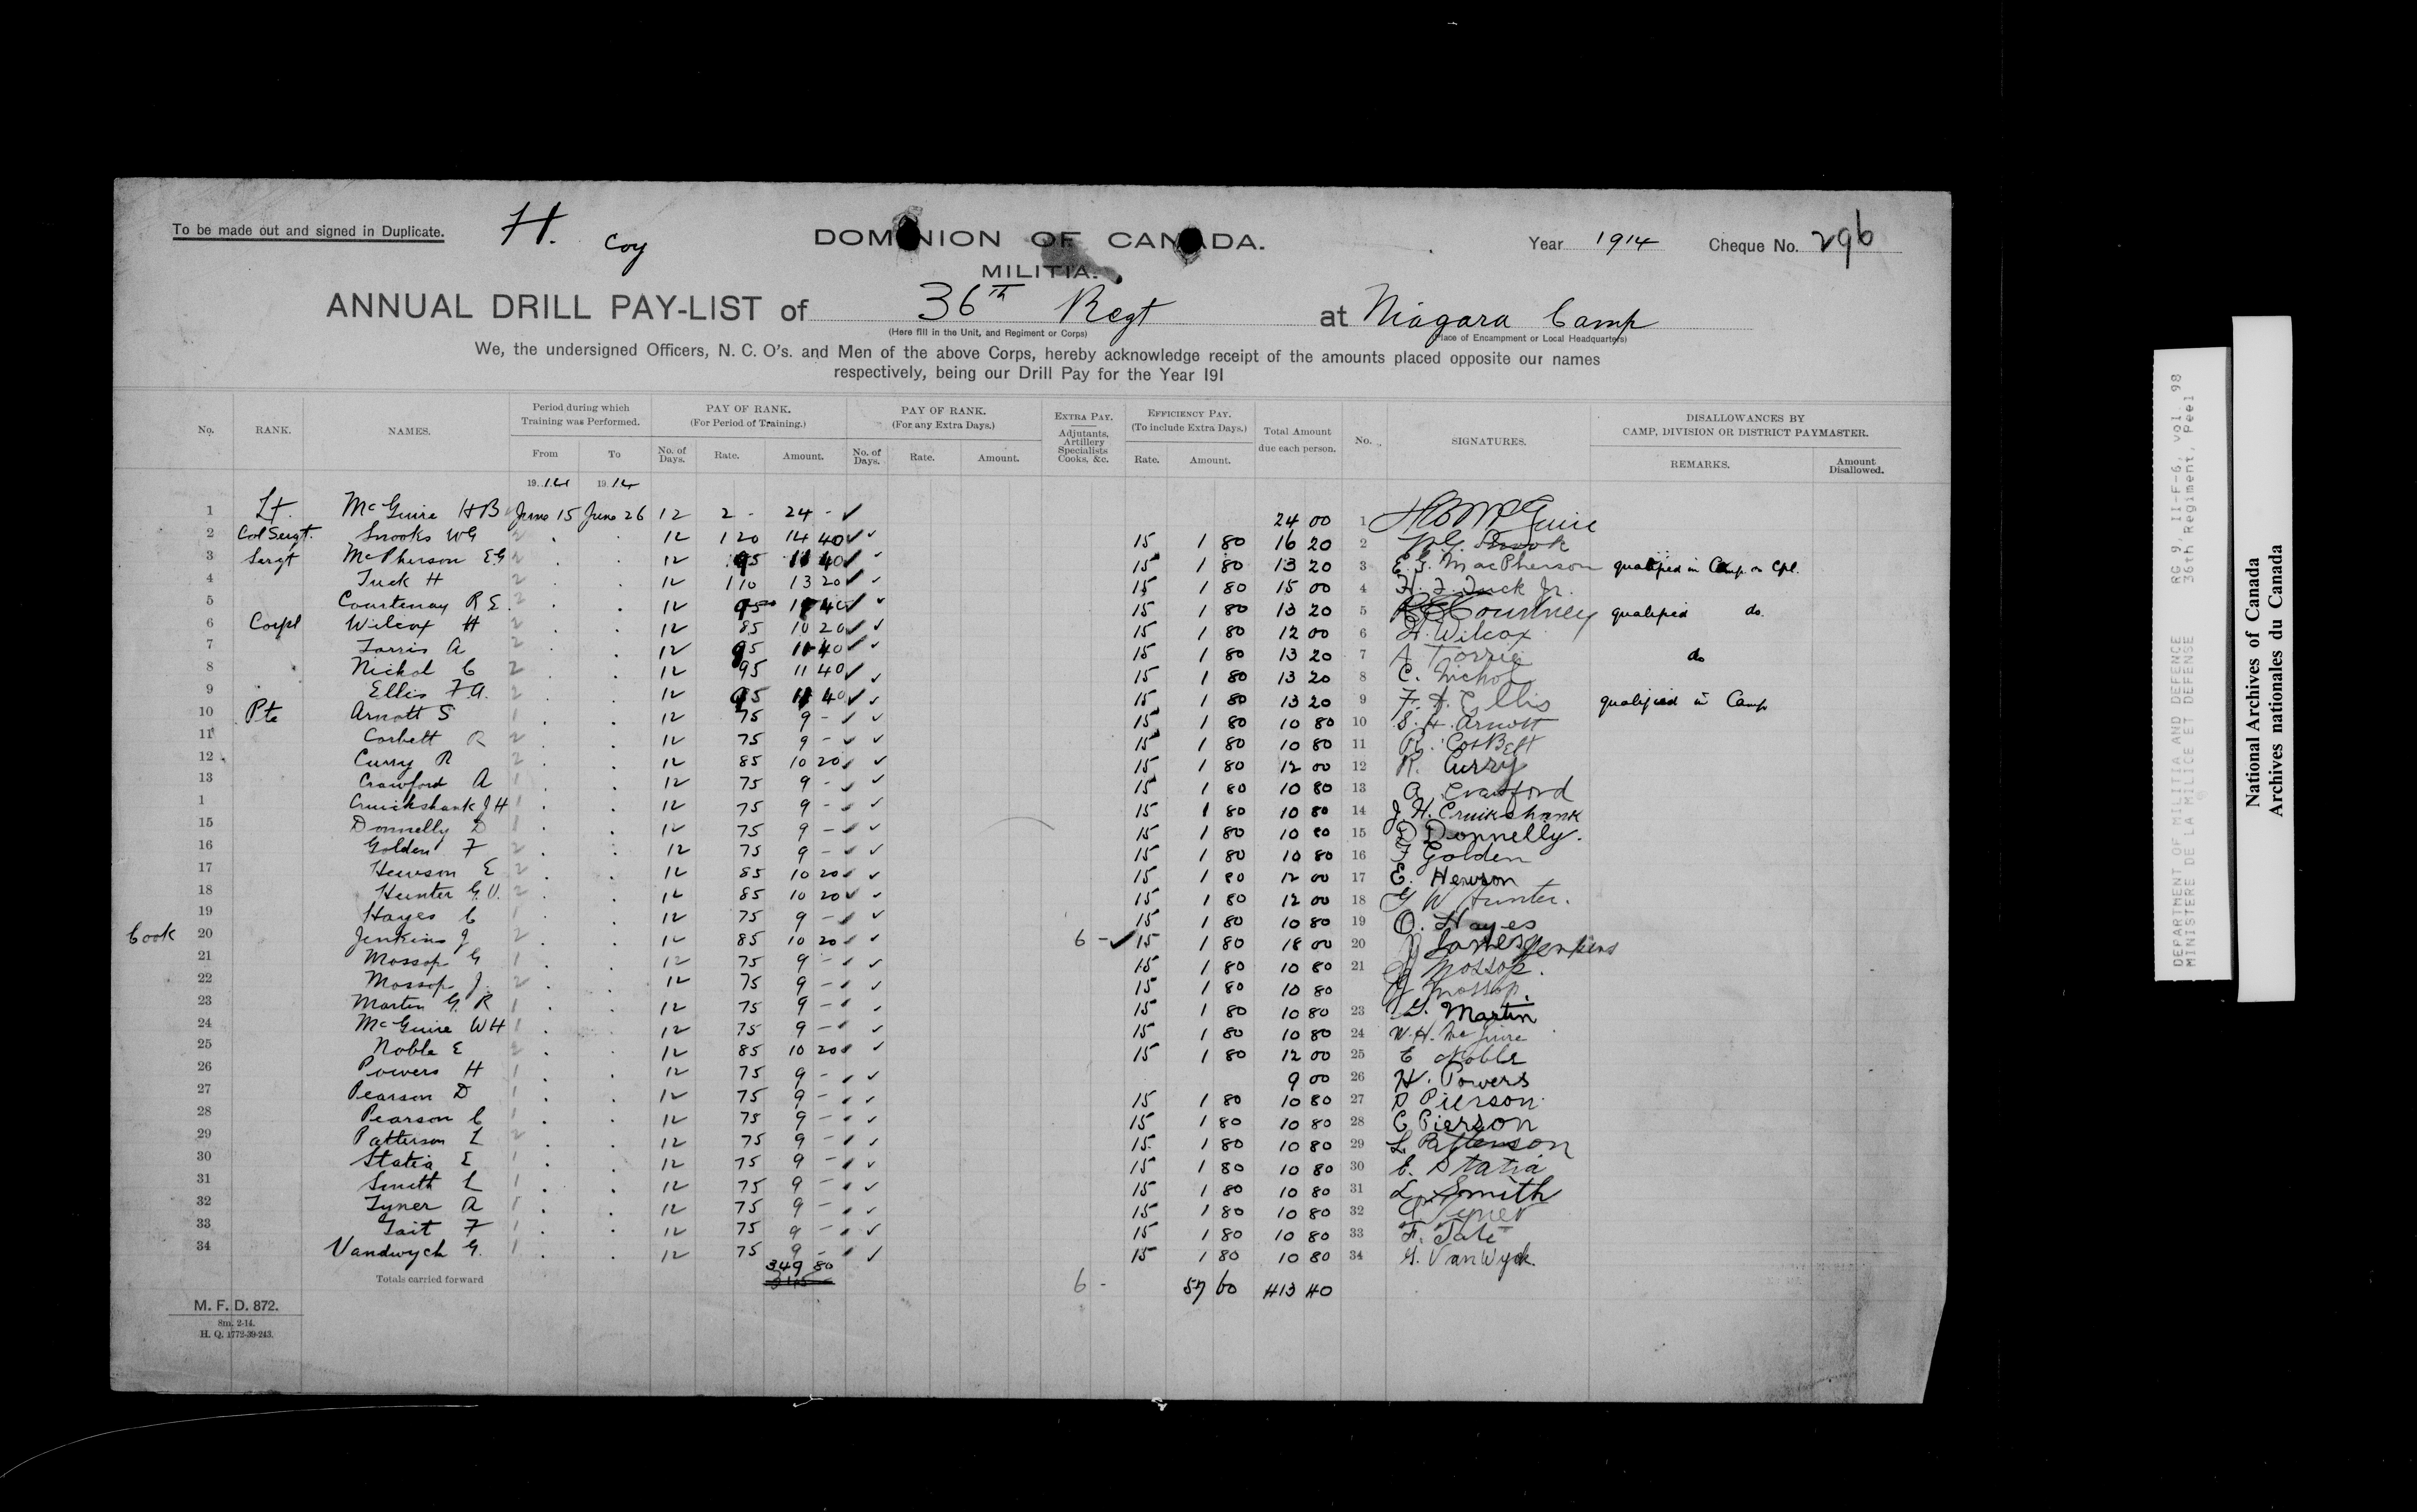 To be made out and signed in Duplicate. H. Coy DOMINION OF CANADA. Year 1914 Cheque No. 296
MILITIA.
ANNUAL DRILL PAY-LIST of 36th Regt at Niagara Camp
(Here fill in the Unit, and Regiment or Corps) (Place of Encampment or Local Headquarters)
We, the undersigned Officers, N. C. O's. and Men of the above Corps, hereby acknowledge receipt of the amounts placed opposite our names
respectively, being our Drill Pay for the Year 191
No. RANK. NAMES. Period during which Training was Performed. From To PAY OF RANK. (For Period of Training.) No. of Days. Rate. Amount. PAY OF RANK. (For any Extra Days.) No. of Days. Rate. Amount. EXTRA PAY. Adjutants, Artillery Specialists Cooks, &c. EFFICIENCY PAY. (To include Extra Days.) Rate. Amount. Total Amount due each person. No. SIGNATURES. DISALLOWANCES BY CAMP, DIVISION OR DISTRICT PAYMASTER. REMARKS. Amount Disallowed.
19 14 19 14
1 Lt. McGuire H B June 15 June 26 12 2 - 24 - 24 00 1 H B McGuire
2 Col Sergt. Snooks W G 2 12 1 20 14 40 15 1 80 16 20 2 W.G. Snook
3 Sergt McPherson E G 2 12 95 11 40 15 1 80 13 20 3 E. G. MacPherson qualified in Camp as Cpl.
4 Tuck H 2 12 1 10 13 20 15 1 80 15 00 4 H. F. Tuck Jr.
5 Courtenay R E. 2 12 95 11 40 15 1 80 13 20 5 R E Courtney qualified do.
6 Corpl Wilcox H 2 12 85 10 20 15 1 80 12 00 6 H. Wilcox
7 Torris A 2 12 95 11 40 15 1 80 13 20 7 A Torrie do
8 Nichol C 2 12 95 11 40 15 1 80 13 20 8 C. Nichol
9 Ellis F.A. 2 12 95 11 40 15 1 80 13 20 9 F. A. Ellis qualified in Camp
10 Pte Arnott S 1 12 75 9 - 15 1 80 10 80 10 S. H. Arnott
11 Corbett R 2 12 75 9 - 15 1 80 10 80 11 R. CorBett
12 Curry R 2 12 85 10 20 15 1 80 12 00 12 R. Curry
13 Crawford A 1 12 75 9 - 15 1 80 10 80 13 A Crawford
1 Cruickshank J H 1 12 75 9 - 15 1 80 10 80 14 J. H. Cruikshank
15 Donnelly D 1 12 75 9 - 15 1 80 10 80 15 D Donnelly.
16 Golden F 2 12 75 9 - 15 1 80 10 80 16 F Golden
17 Hewson E 2 12 85 10 20 15 1 80 12 00 17 E. Hewson
18 Hunter G.V. 2 12 85 10 20 15 1 80 12 00 18 G W Hunter.
19 Hayes C 1 12 75 9 - 15 1 80 10 80 19 O. Hayes
Cook 20 Jenkins J 2 12 85 10 20 6 - 15 1 80 18 00 20 James Jenkins
21 Mossop G 1 12 75 9 - 15 1 80 10 80 21 G Mossop.
22 Mossop J. 2 12 75 9 - 15 1 80 10 80 J Mossop.
23 Martin G. R 1 12 75 9 - 15 1 80 10 80 23 G. Martin
24 McGuire W H 1 12 75 9 - 15 1 80 10 80 24 W. H. McGuire
25 Noble E 2 12 85 10 20 15 1 80 12 00 25 E Noble
26 Powers H 1 12 75 9 - 9 00 26 H. Powers
27 Pearson D 1 12 75 9 - 15 1 80 10 80 27 D Pierson
28 Pearson C 1 12 75 9 - 15 1 80 10 80 28 C Pierson
29 Patterson L 2 12 75 9 - 15 1 80 10 80 29 L Patterson
30 Statia E 1 12 75 9 - 15 1 80 10 80 30 E. Statia
31 Smith L 1 12 75 9 - 15 1 80 10 80 31 L. Smith
32 Tyner A 1 12 75 9 - 15 1 80 10 80 32 A. Tyner
33 Tait F 1 12 75 9 - 15 1 80 10 80 33 F. Tate
34 Vandwych G. 1 12 75 9 - 15 1 80 10 80 34 G. VanWyck.
Totals carried forward 349 80 6 - 57 60 413 40
M. F. D. 872.
8m. 2-14.
H. Q. 1772-39-243.
DEPARTMENT OF MILITIA AND DEFENCE RG 9, II-F-6, vol. 98
MINISTERE DE LA MILICE ET DEFENSE 36th Regiment, Peel
National Archives of Canada
Archives nationales du Canada